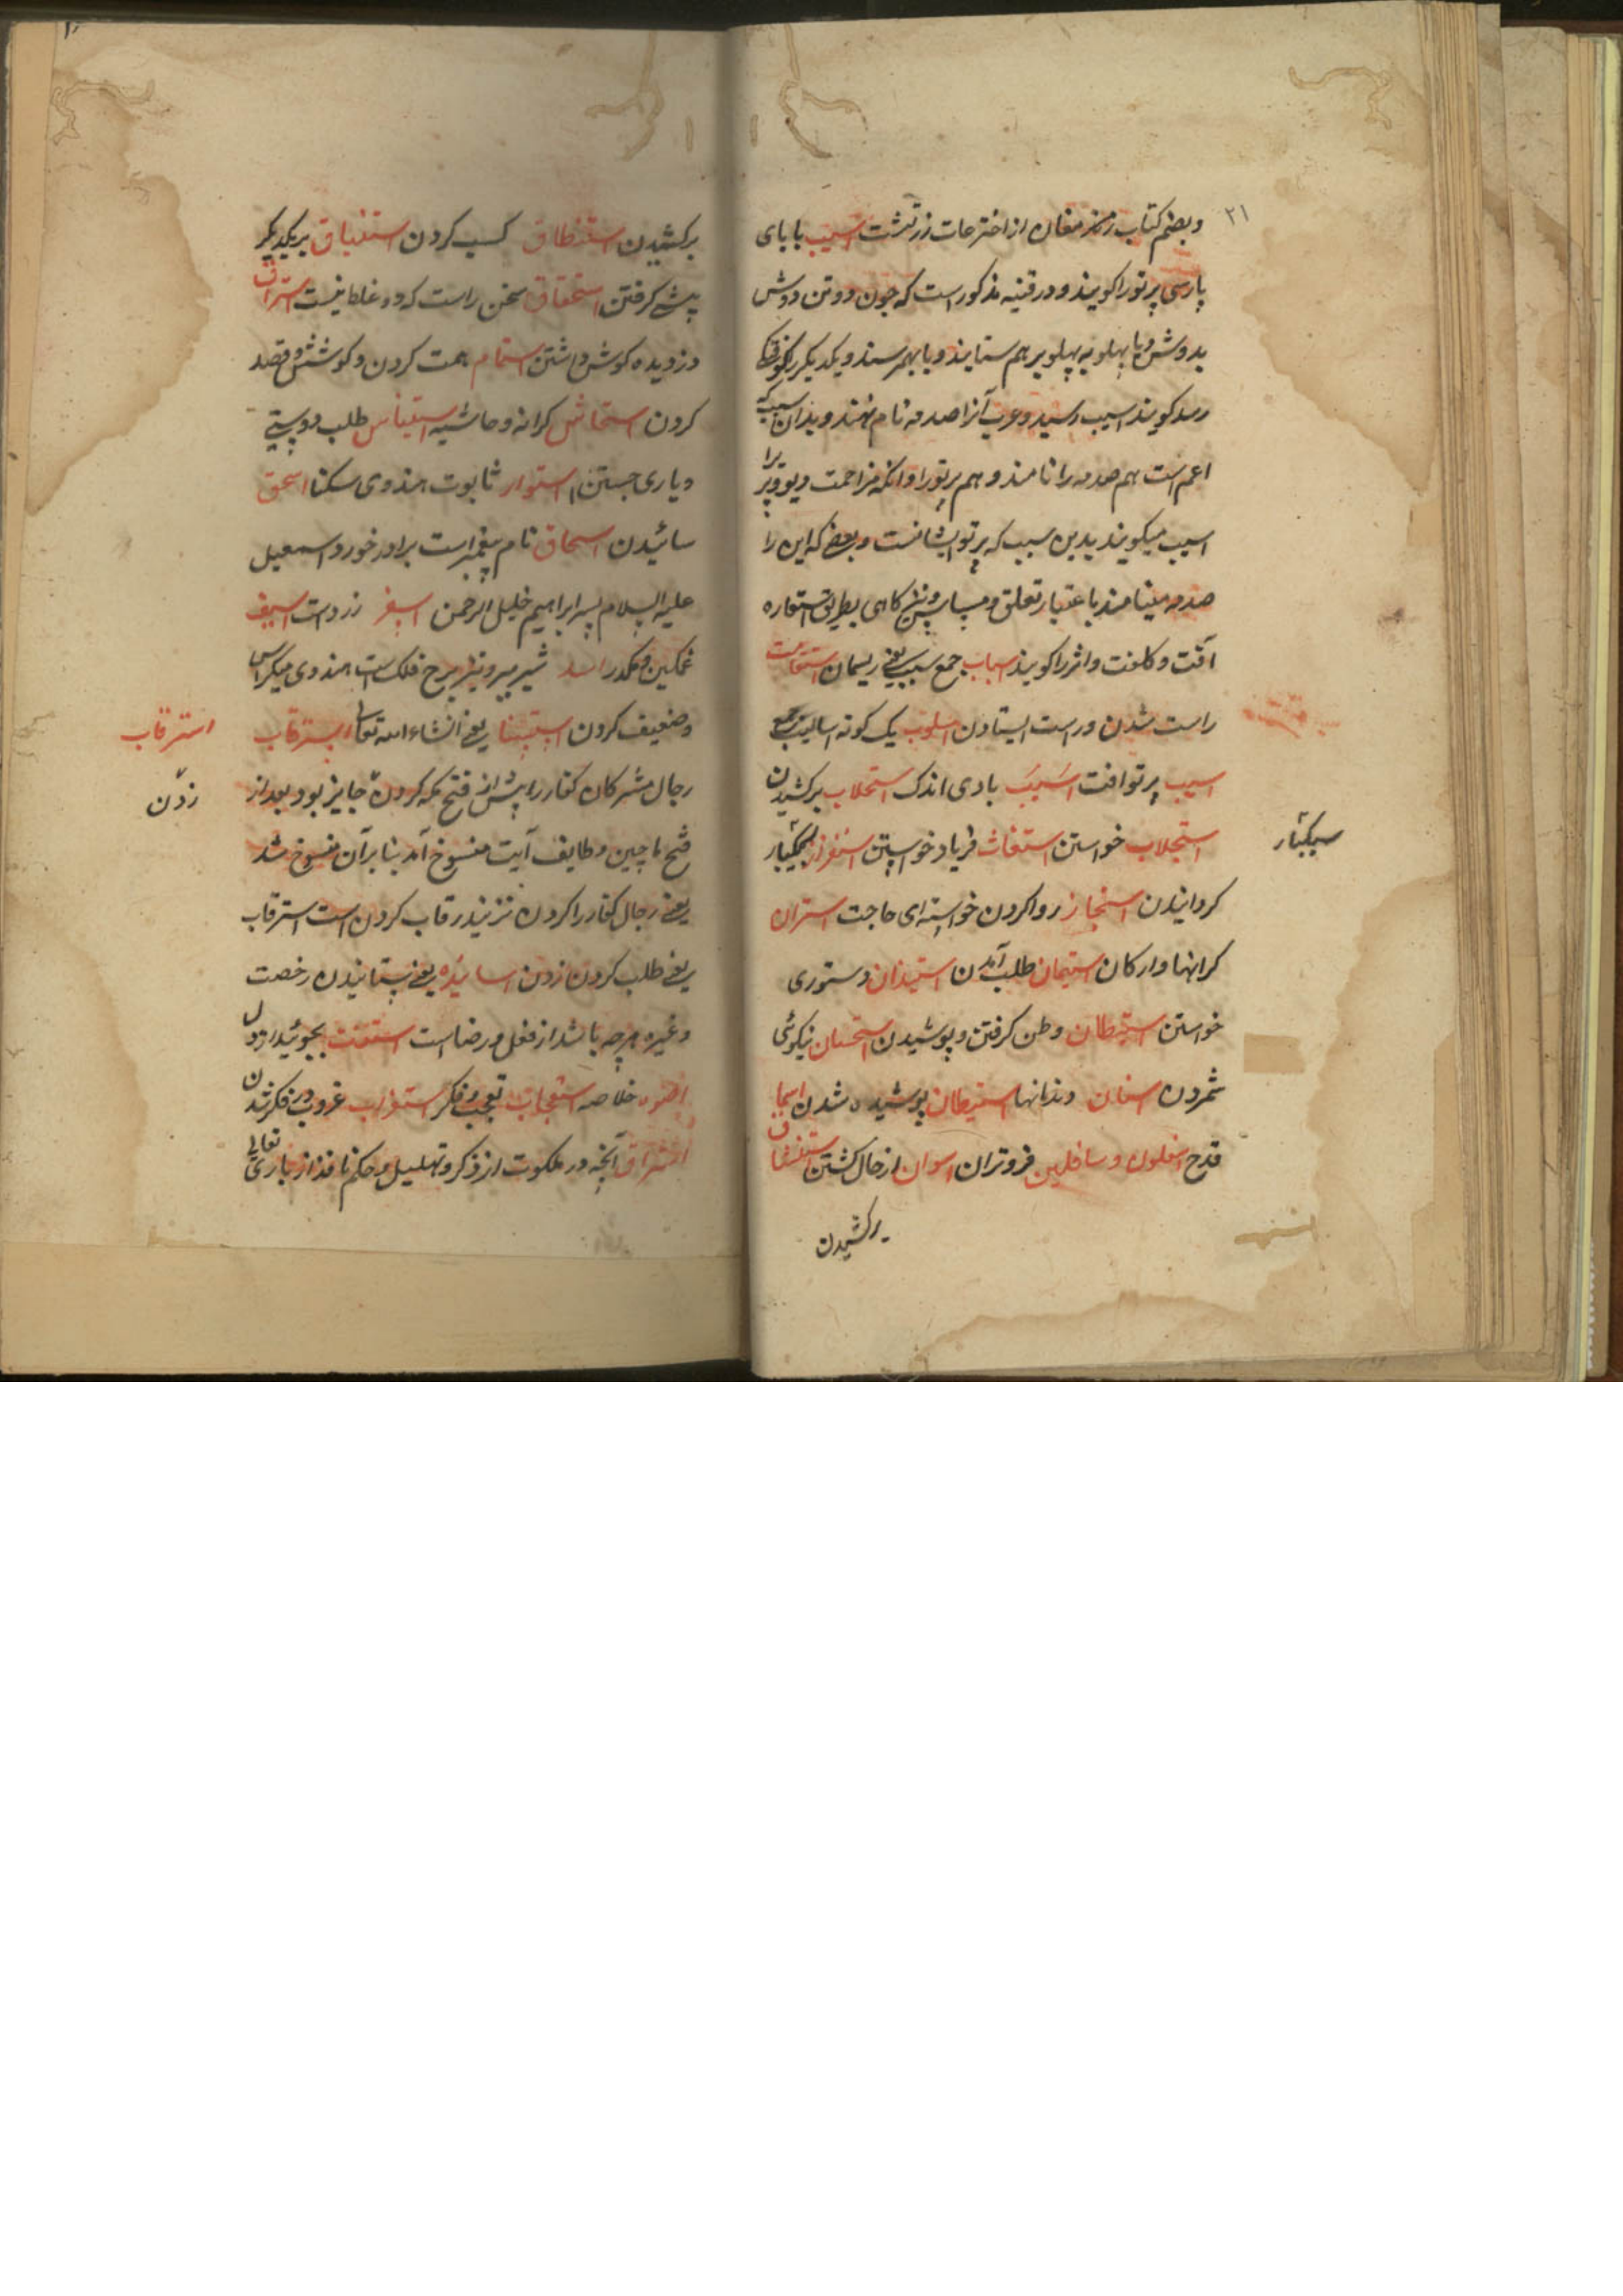 ۲۱
وبضم کتاب رمز مغان از اختر حات زرتشت اسیب با بای
پارسی پرتو را کویند و در قنیه مذکور است که جون دو تن دوش
بدوش و یا پهلو به پهلو بر هم ستایند و یا بهم رسند و یکدیکر را کوفتکی
رسد کویند اسیب رسید و عرب آنرا صدمه نام نهند و بدان سبب که
اعم است هم صدمه را نامند و هم پرتو را و انکه مزاحمت دیو و پری را
اسیب میکویند بدین سبب که پرتو ایشانست و بعضی که این را
صدمه مینامند باعتبار تعلق و کاهی بطریق استعاره
آفت و کلفت و اثر را کویند اسباب جمع سبب یعنی ریسمان استقامت
راست شدن و راست ایستادن اسلوب یک کونه اسالیب جمع
اسیب پرتو افت اسیب بادی اندک استحلاب برکشیدن
استجلاب خواستن استغاث فریاد خواستن استفزاز سبکبار
سبکبار
کردانیدن استنجاز روا کردن خواسته ای حاجت استران
کرانها و ارکان استیمان طلب آمدن استیذان دستوری
خواستن استیطان وطن کرفتن و پوشیدن استحسان نیکوئی
شمردن اسنان دندانها استیطان پوشیده شدن اسجا
قدح اسفلون و سافلین فروتران اسوان از حال کشتن استنشاق
برکشیدن
برکشیدن استنطاق کسب کردن استنباق بر یکدیکر
پیشی کرفتن استحقاق سخن راست که در و غلط نیست استراق
دزدیده کوش داشتن استمام همت کردن و کوشش و قصد
کردن استحاش کرانه و حاشیه استیناس طلب دوستی
و یاری جستن استوار ثابوت هندوی سکتا اسحق
سائیدن اسحاق نام پیغمبر است برادر خورد اسمعیل
علیه السلام پسر ابراهیم خلیل الرحمن اسفر زرد است اسیف
غمکین و مکدر اسد شیر ببر و نیز برج فلک است هندوی میکراس
و ضعیف کردن استثنا یعنی انشاء الله تعالی استرقاب
استرقاب
رجال مشرکان کفار را پیش از فتح مکه کردن جایز بود بعد از
زدن
فتح ماچین و طایف آیت منسوخ آمد بنا برآن منسوخ شد
یعنی رجال کفار را کردن نزنید رقاب کردن است استرقاب
یعنی طلب کردن زدن اسانیده یعنی ستانیدن رخصت
و غیره هرچه باشد از فعل و رضا است استفتت بجوئید از دل
خلاصه استعجاب تعجب و فکر استغراب غروب در فکر شدن
استراق آنچه در ملکوت از ذکر و تهلیل و حکم نافذ از باری تعالی